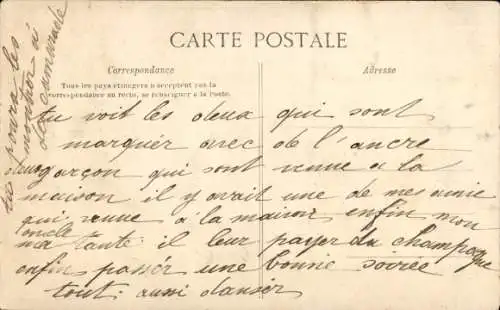 CARTE POSTALE
Correspondance
Adresse
Tous les pays étrangers n'acceptent pas la
correspondance au recto, se renseigner à la Poste.
tu voit les deux qui sont
marquér avec de l'ancre
deux garçon qui sont venue a la
maison il y avait une de mes amie
qui venue a la maison enfin mon
oncle
ma tante il leur payer du champagne
enfin passér une bonne soirée
tout aussi danser
tu pourra les
montrer à
la camarade